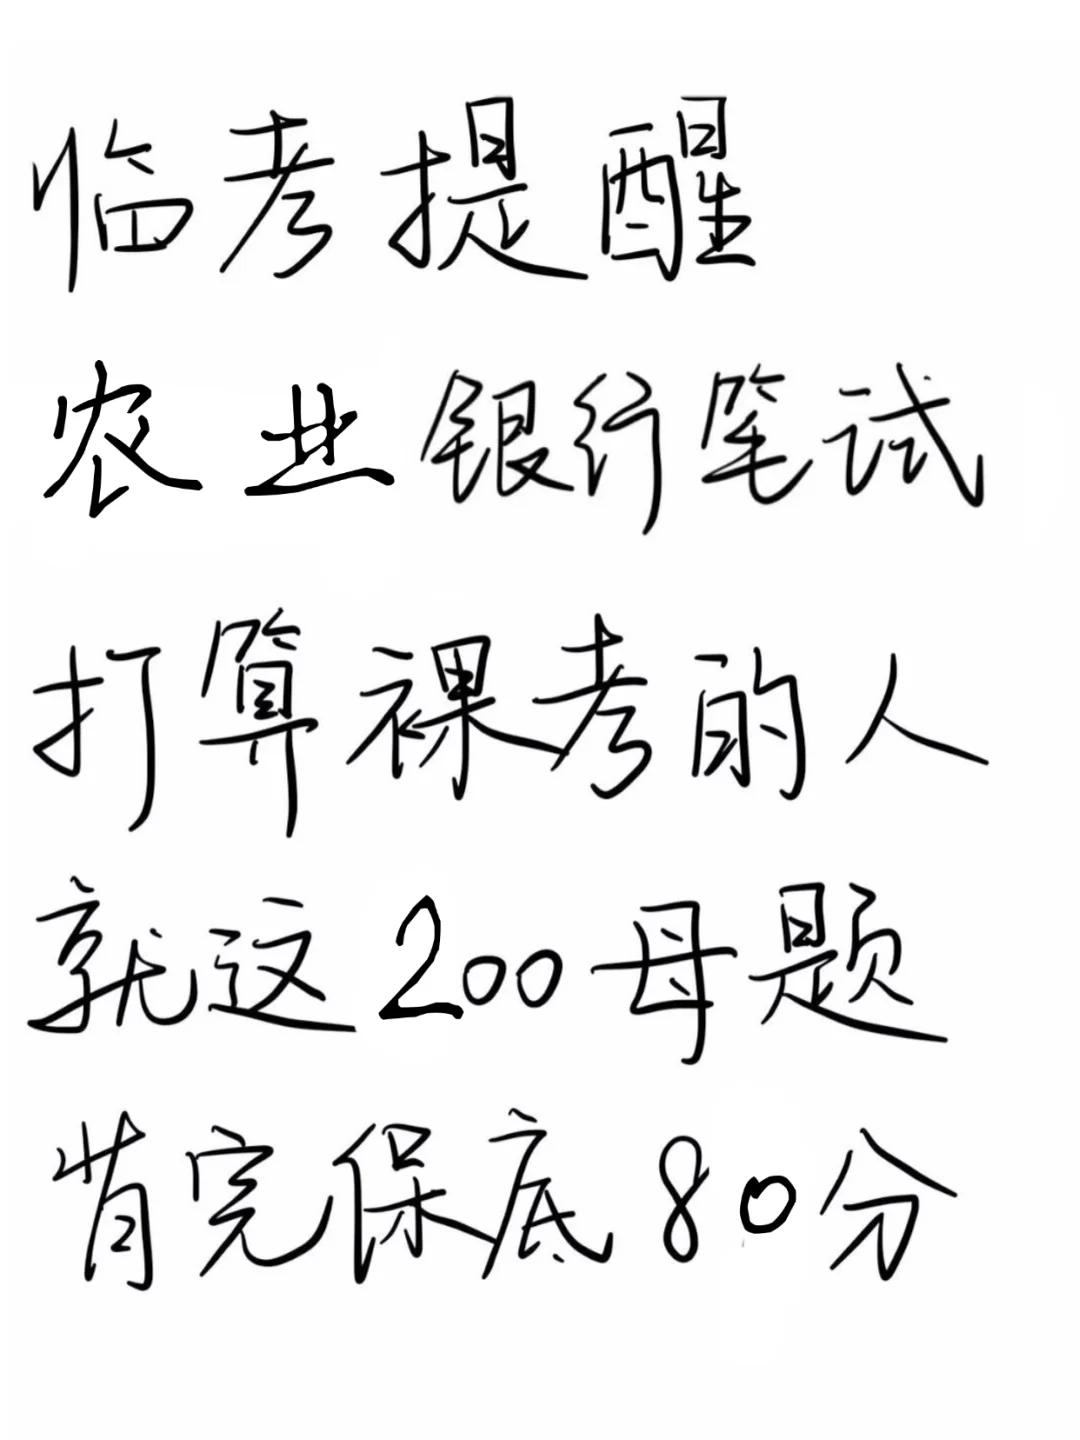 临考提醒
农业银行笔试
打算裸考的人
就这200母题
背完保底80分